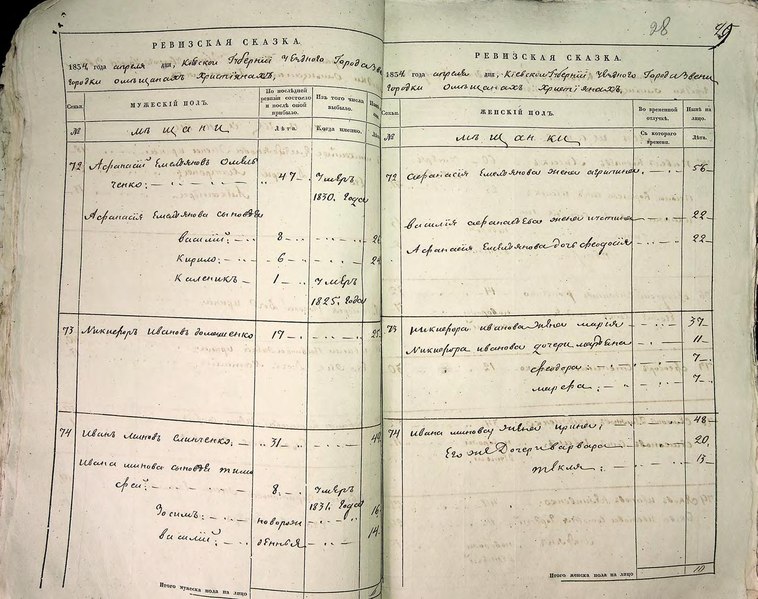 РЕВИЗСКАЯ СКАЗКА.
1834 года апреля дня, Киевской Губернии Уезднаго Города Зве
городки омещанахъ Христіянахъ,
Семьи.
МУЖЕСКІЙ ПОЛЪ.
По последней ревизіи состояло и после оной прибыло.
Изъ того числа выбыло.
№
мещани
Лета.
Когда именно.
72 Афанасій Емельяновъ Омель
ченко: 47 Умеръ
1830. Года
Афанасія Емельянова сыновья
василій: 8
Кирило: 6
Каленикъ 1 Умеръ
1825. Года
73 Никифоръ Ивановъ домашенко 17
74 Иванъ миновъ 31
Ивана минова сыновья тимо
фей: 8. Умеръ
1831. Года
Зосимъ: новорож 16
василій: денныя 14.
Итого мужеска пола на лицо
28
РЕВИЗСКАЯ СКАЗКА.
1834 года апреля дня, Кіевской Губерніи Уезднаго Города Звени
городки Омещанахъ Христіянахъ,
Семьи.
ЖЕНСКІЙ ПОЛЪ.
Во временной отлучке.
Ныне на лицо.
№
мещанки
Съ котораго времени.
Лета.
72 афанасія Емельянова жена 56
василія афанасьева жена 22
Афанасія Емельянова дочь феодосія 22
73 никифора иванова жена марія 37
Никифора иванова дочери 11
феодора 7
7
74 ивана минова жена ирина, 48
Его же Дочери варвара 20,
текля: 13
Итого женска пола на лицо 10